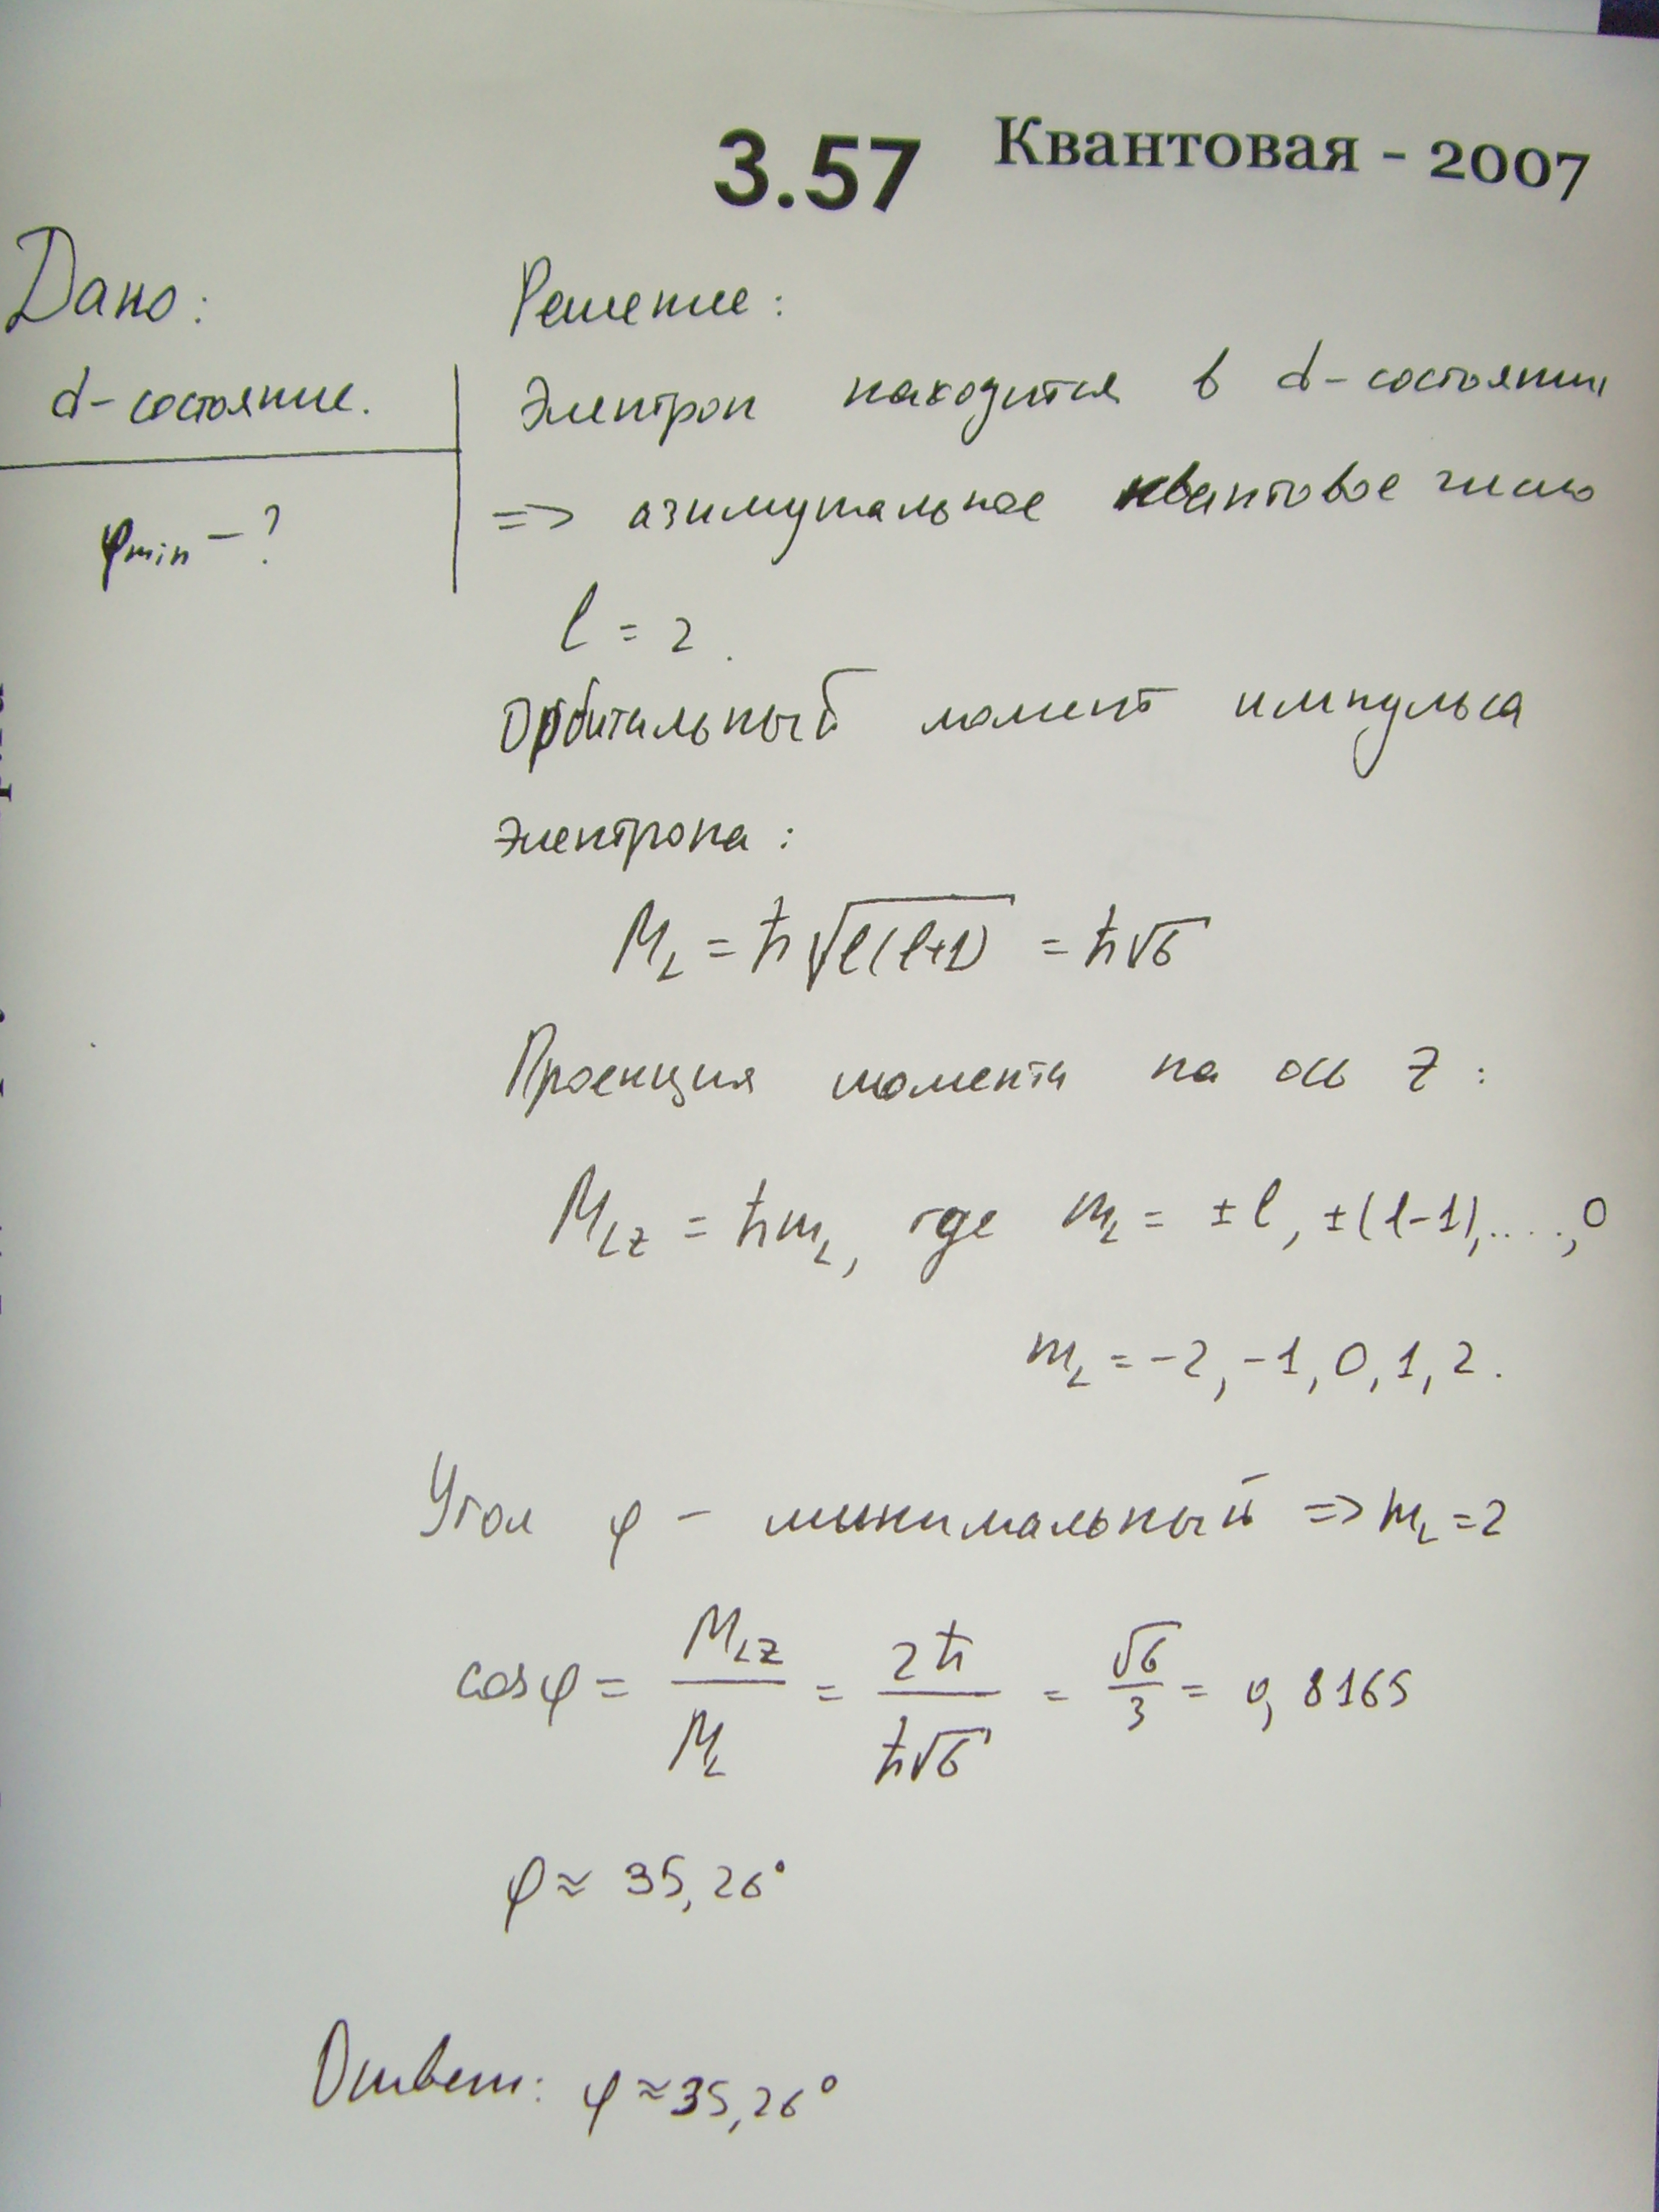 3.57 Квантовая - 2007
Дано:
d-состояние.
φmin - ?
Решение:
Электрон находится в d-состоянии
=> азимутальное квантовое число
l = 2.
Орбитальный момент импульса
электрона:
M_L = ħ√(l(l+1)) = ħ√6
Проекция момента на ось z :
M_Lz = ħm_L, где m_L = ±l, ±(l-1),....,0
m_L = -2, -1, 0, 1, 2.
Угол φ - минимальный => m_L = 2
cosφ = M_Lz / M_L = 2ħ / ħ√6 = √6 / 3 = 0,8165
φ ≈ 35,26°
Ответ: φ ≈ 35,26°